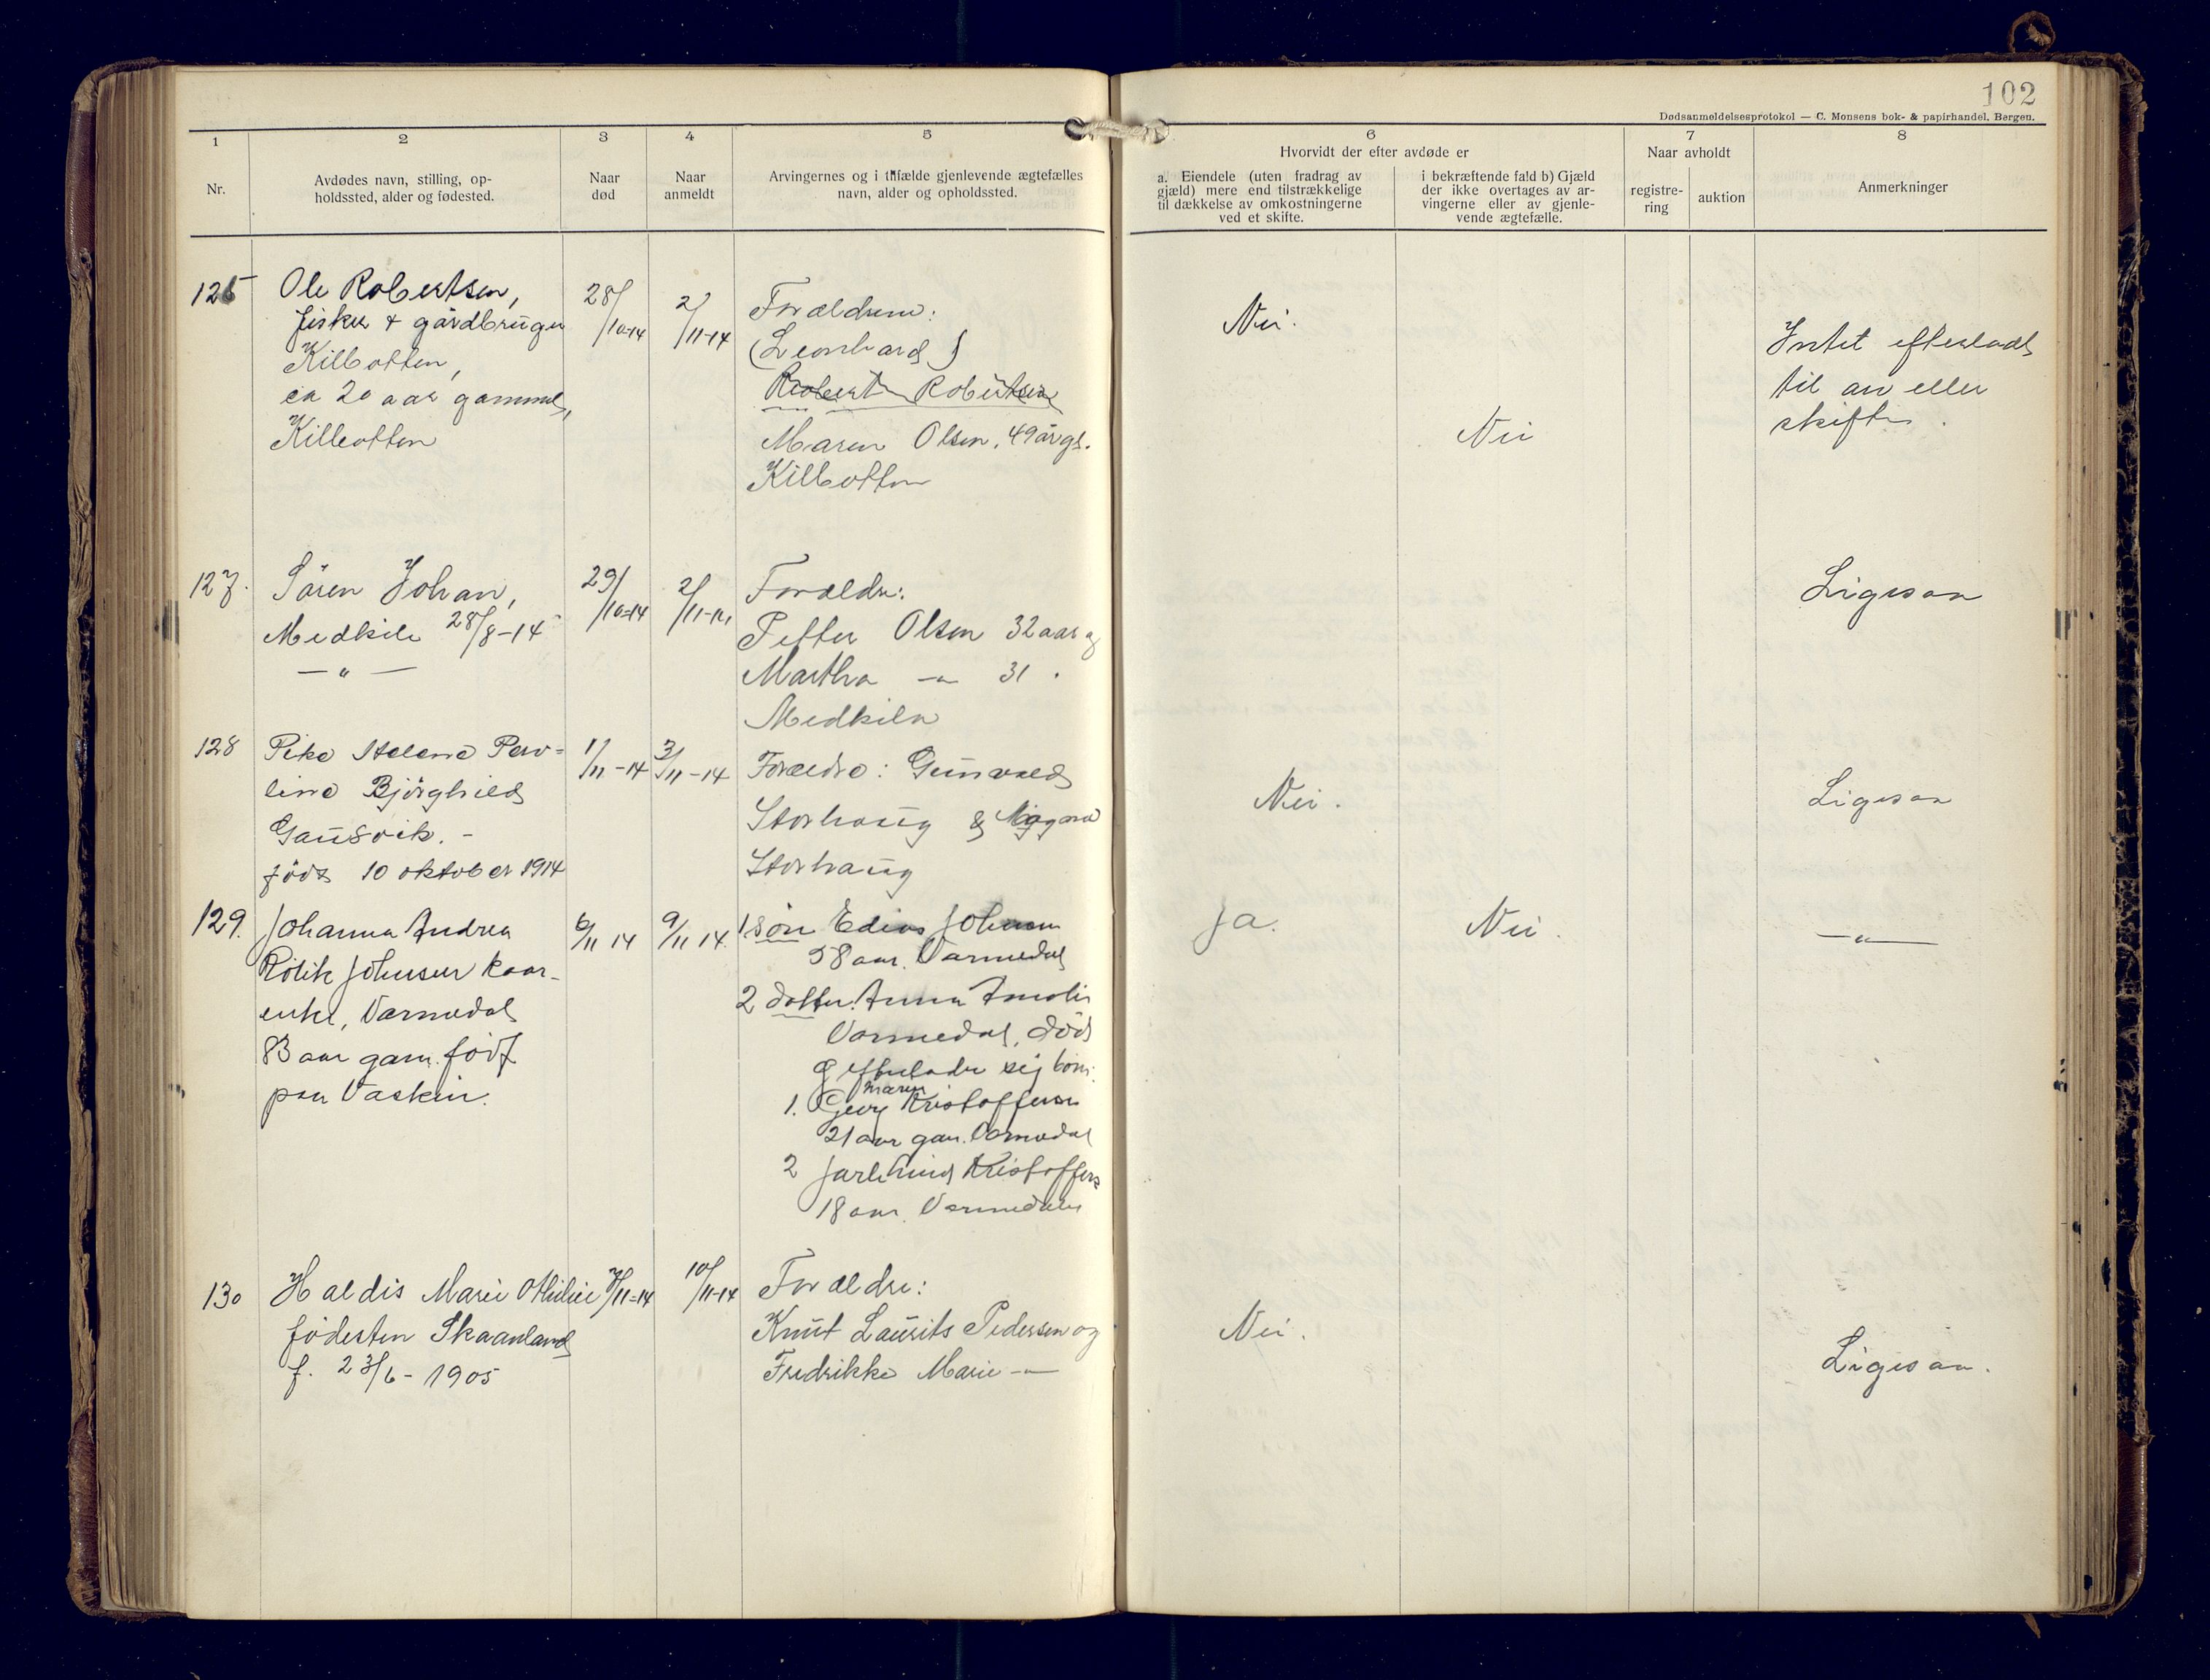 102
Dødsanmeldelsesprotokol — C. Monsens bok- & papirhandel, Bergen.
1
Nr.
2
Avdødes navn, stilling, op-
holdssted, alder og fødested.
3
Naar
død
4
Naar
anmeldt
5
Arvingernes og i tilfælde gjenlevende ægtefælles
navn, alder og opholdssted.
6
Hvorvidt der efter avdøde er
a. Eiendele (uten fradrag av
gjæld) mere end tilstrækkelige
til dækkelse av omkostningerne
ved et skifte.
i bekræftende fald b) Gjæld
der ikke overtages av ar-
vingerne eller av gjenle-
vende ægtefælle.
7
Naar avholdt
registre-
ring
auktion
8
Anmerkninger
126
Ole Robertsen,
fisker & gårdbruger
Kilbotten,
ca 20 aar gammel,
Kilbotten
28/10-14
2/11-14
Forældrene:
(Leonhard)
Robert Robertsen
Maren Olsen, 49 årg.
Kilbotten
Nei.
Nei
Intet efterladt
til arv eller
skifte.
127.
Sören Johan,
Medkile 28/8-14
— " —
29/10-14
2/11-14
Forældre:
Petter Olsen 32 aar og
Martha — " — 31 .
Medkila
Ligesaa
128
Pike Helene Pau=
line Bjørghild
Gausvik. -
född 10 oktober 1914
1/11-14
3/11-14
Forældre: Gunvald
Storhaug & Magna
Storhaug
Nei.
Ligesaa
129.
Johanna Andrea
Rölik Johnsen kaar-
enke, Varmedal
83 aar gam. född
paa Vaskin.
6/11 14
9/11 14
1 sön Edias Johnsen
58 aar. Varmedal
2 datter. Anna Amalie
Varmedal, död
og efterladr sig börn:
1. Georg Maren Kristoffersen
21 aar gam. Varmedal
2 Jarl Kristoffers
18 aar. Varmedalen
Ja.
Nei.
— " —
130
Haldis Marie Othilie
födesten Skaanland
f. 23/6-1905
7/11-14
10/11-14
Forældre:
Knut Laurits Pedersen og
Fredrikke Marie — " —
Nei.
Ligesaa.